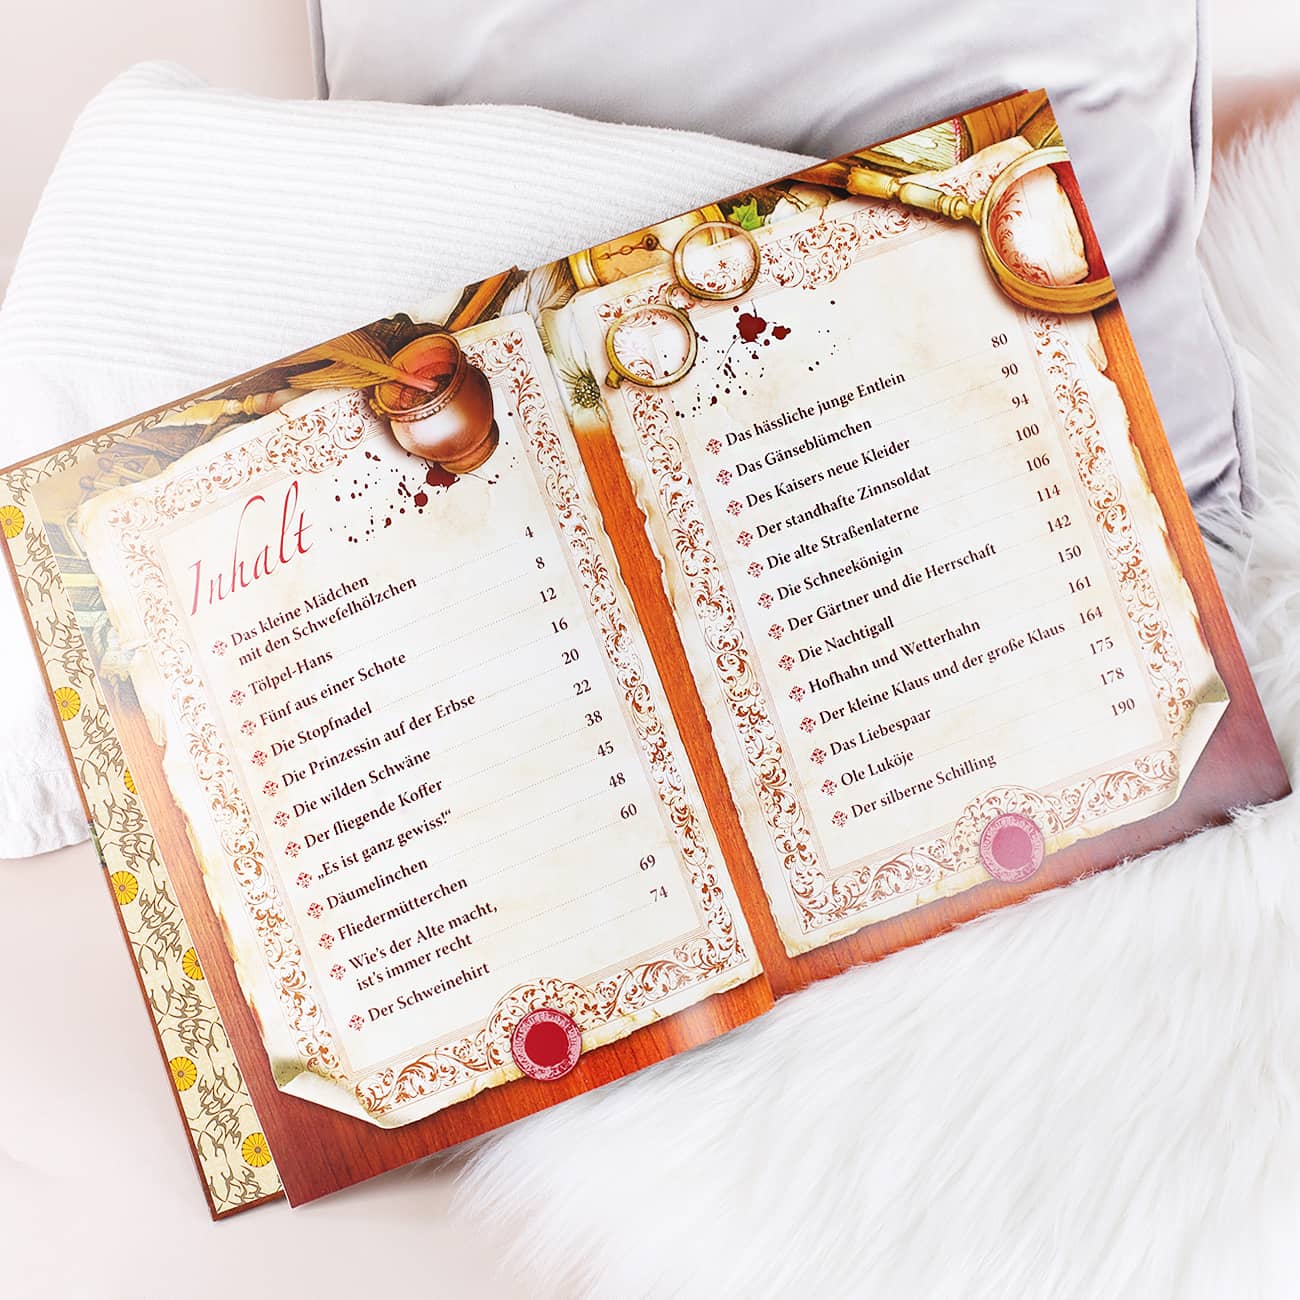 Inhalt
Das kleine Mädchen
mit den Schwefelhölzchen 4
Tölpel-Hans 8
Fünf aus einer Schote 12
Die Stopfnadel 16
Die Prinzessin auf der Erbse 20
Die wilden Schwäne 22
Der fliegende Koffer 38
„Es ist ganz gewiss!“ 45
Däumelinchen 48
Fliedermütterchen 60
Wie's der Alte macht,
ist's immer recht 69
Der Schweinehirt 74
Das hässliche junge Entlein 80
Das Gänseblümchen 90
Des Kaisers neue Kleider 94
Der standhafte Zinnsoldat 100
Die alte Straßenlaterne 106
Die Schneekönigin 114
Der Gärtner und die Herrschaft 142
Die Nachtigall 150
Hofhahn und Wetterhahn 161
Der kleine Klaus und der große Klaus 164
Das Liebespaar 175
Ole Luköje 178
Der silberne Schilling 190